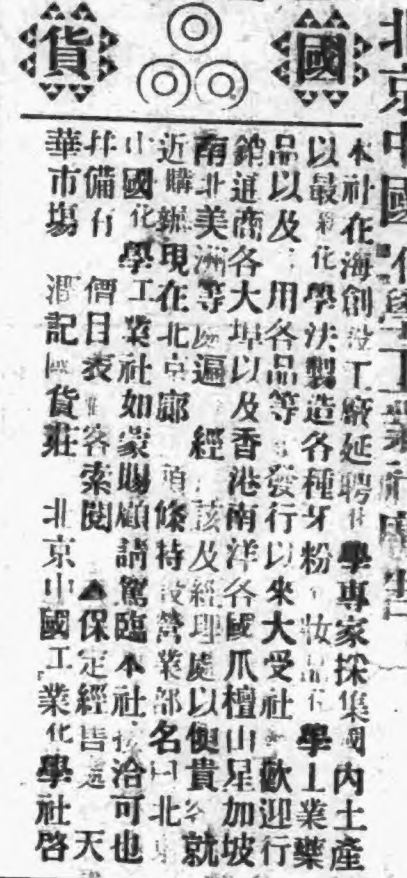 北京中國化學工業社廣告
國貨
本社在海創設工廠延聘化學專家採集國內土產
以最 化學法製造各種牙粉 妝品化學工業藥
品以及 用各品等 發行以來大受社 歡迎行
銷通商各大埠以及香港南洋各國爪檀山星加坡
南北美洲等處遍 經 該及經理處以便貴 就
近購辦現在北京廊 頭條特設營業部名曰北京
中國化學工業社如蒙賜顧請駕臨本社接洽可也
幷備有 價目表 客索閱 ▲保定經售處 天
華市場 記 貨莊 北京中國工業化學社啓